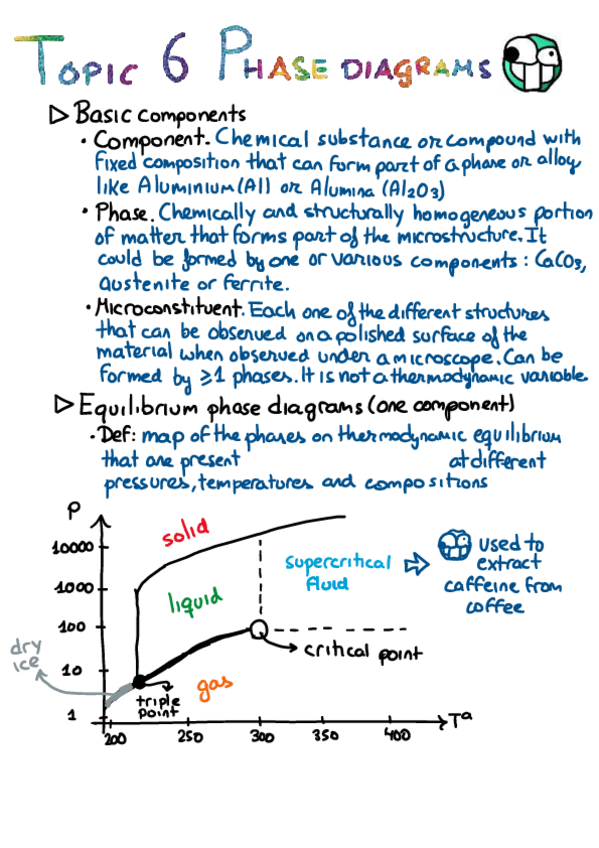 Topic 6 Phase diagrams
▷ Basic components
• Component. Chemical substance or compound with
fixed composition that can form part of a phase or alloy
like Aluminium (Al) or Alumina (Al2O3)
• Phase. Chemically and structurally homogeneous portion
of matter that forms part of the microstructure. It
could be formed by one or various components: CaCO3,
austenite or ferrite.
• Microconstituent. Each one of the different structures
that can be observed on a polished surface of the
material when observed under a microscope. Can be
formed by ≥1 phases. It is not a thermodynamic variable
▷ Equilibrium phase diagrams (one component)
• Def: map of the phases on thermodynamic equilibrium
that are present at different
pressures, temperatures and compositions
P
solid
10000
supercritical
fluid
used to
extract
caffeine from
coffee
1000
liquid
100
critical point
dry
ice
10
gas
triple
point
1
200 250 300 350 400
Tª